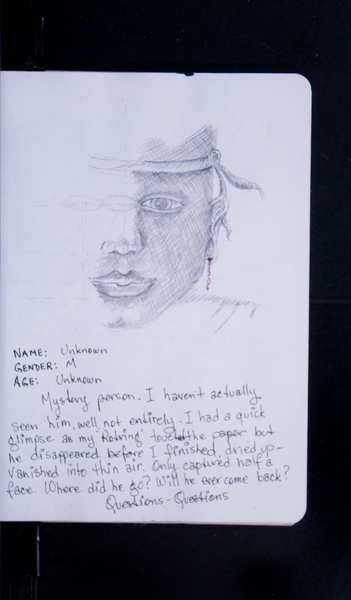 NAME: Unknown
GENDER: M
AGE: Unknown
Mystery person. I haven't actually
seen him, well, not entirely. I had a quick
glimpse as my Rotring touched the paper but
he disappeared before I finished, dried up -
vanished into thin air. Only captured half a
face. Where did he go? Will he ever come back?
Questions - Questions